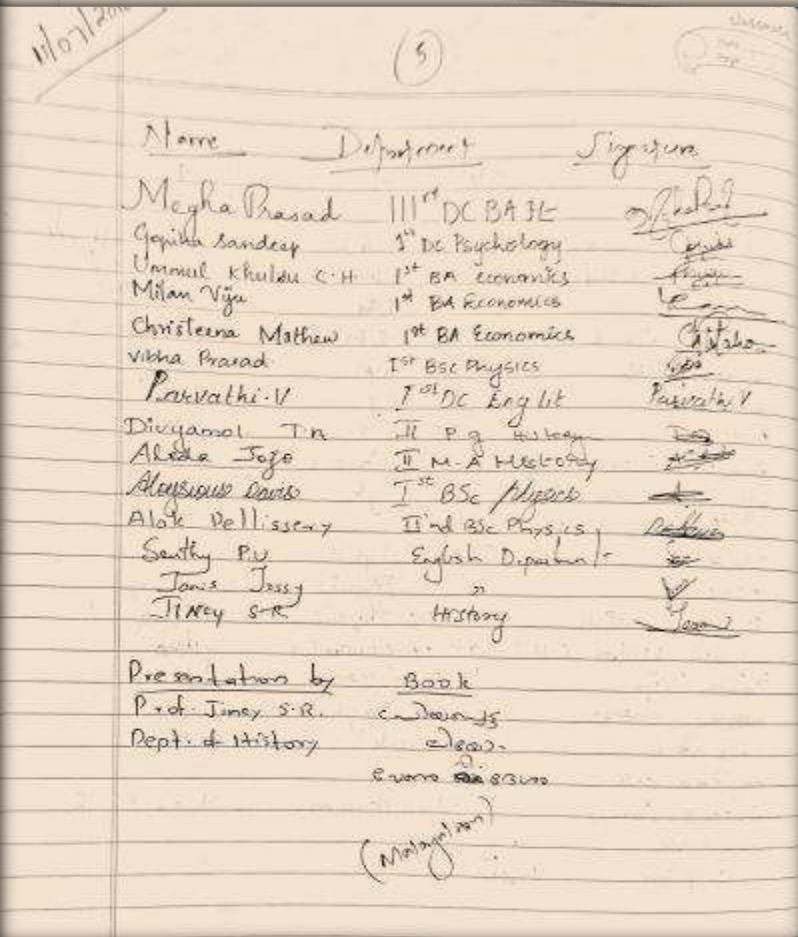 11/07/20
5
Name Department Signature
Megha Prasad IIIrd DC BA
Gopika Sandeep Ist DC Psychology
Ummul Khulsu C.H Ist BA Economics
Milan Viju Ist BA Economics
Christeena Mathew Ist BA Economics
Vibha Prasad Ist Bsc Physics
Parvathi.V Ist DC Eng lit Parvathi V
Divyamol T.N II P g History
Jojo II M.A History
Aloysious Davis Ist BSc Physics
Alok Pellissery II nd BSc Physics
Santhy P.U English Department
Janis Jessy "
Jincy S.R History
Presentation by Book
Prof. Jincy S.R.
Dept. of History
(Malayalam)